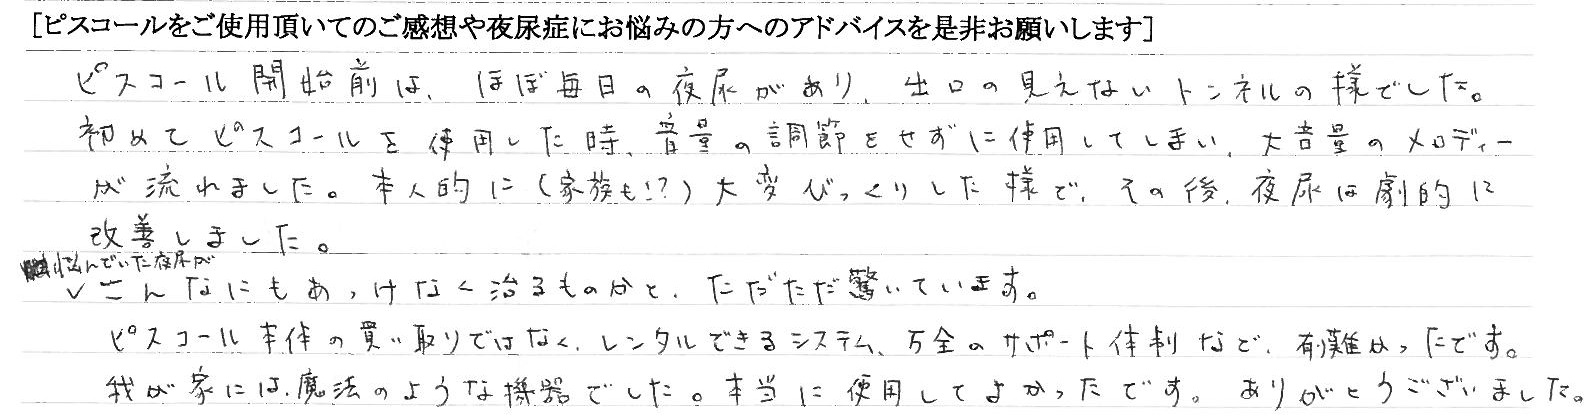 [ピスコールをご使用頂いてのご感想や夜尿症にお悩みの方へのアドバイスを是非お願いします]
ピスコール開始前は、ほぼ毎日の夜尿があり、出口の見えないトンネルの様でした。
初めてピスコールを使用した時、音量の調節をせずに使用してしまい、大音量のメロディー
が流れました。本人的に(家族も!?)大変びっくりした様で、その後、夜尿は劇的に
改善しました。
悩んでいた夜尿が
こんなにもあっけなく治るものかと、ただただ驚いています。
ピスコール本体の買い取りではなく、レンタルできるシステム、万全のサポート体制など、有難かったです。
我が家には、魔法のような機器でした。本当に使用してよかったです。ありがとうございました。